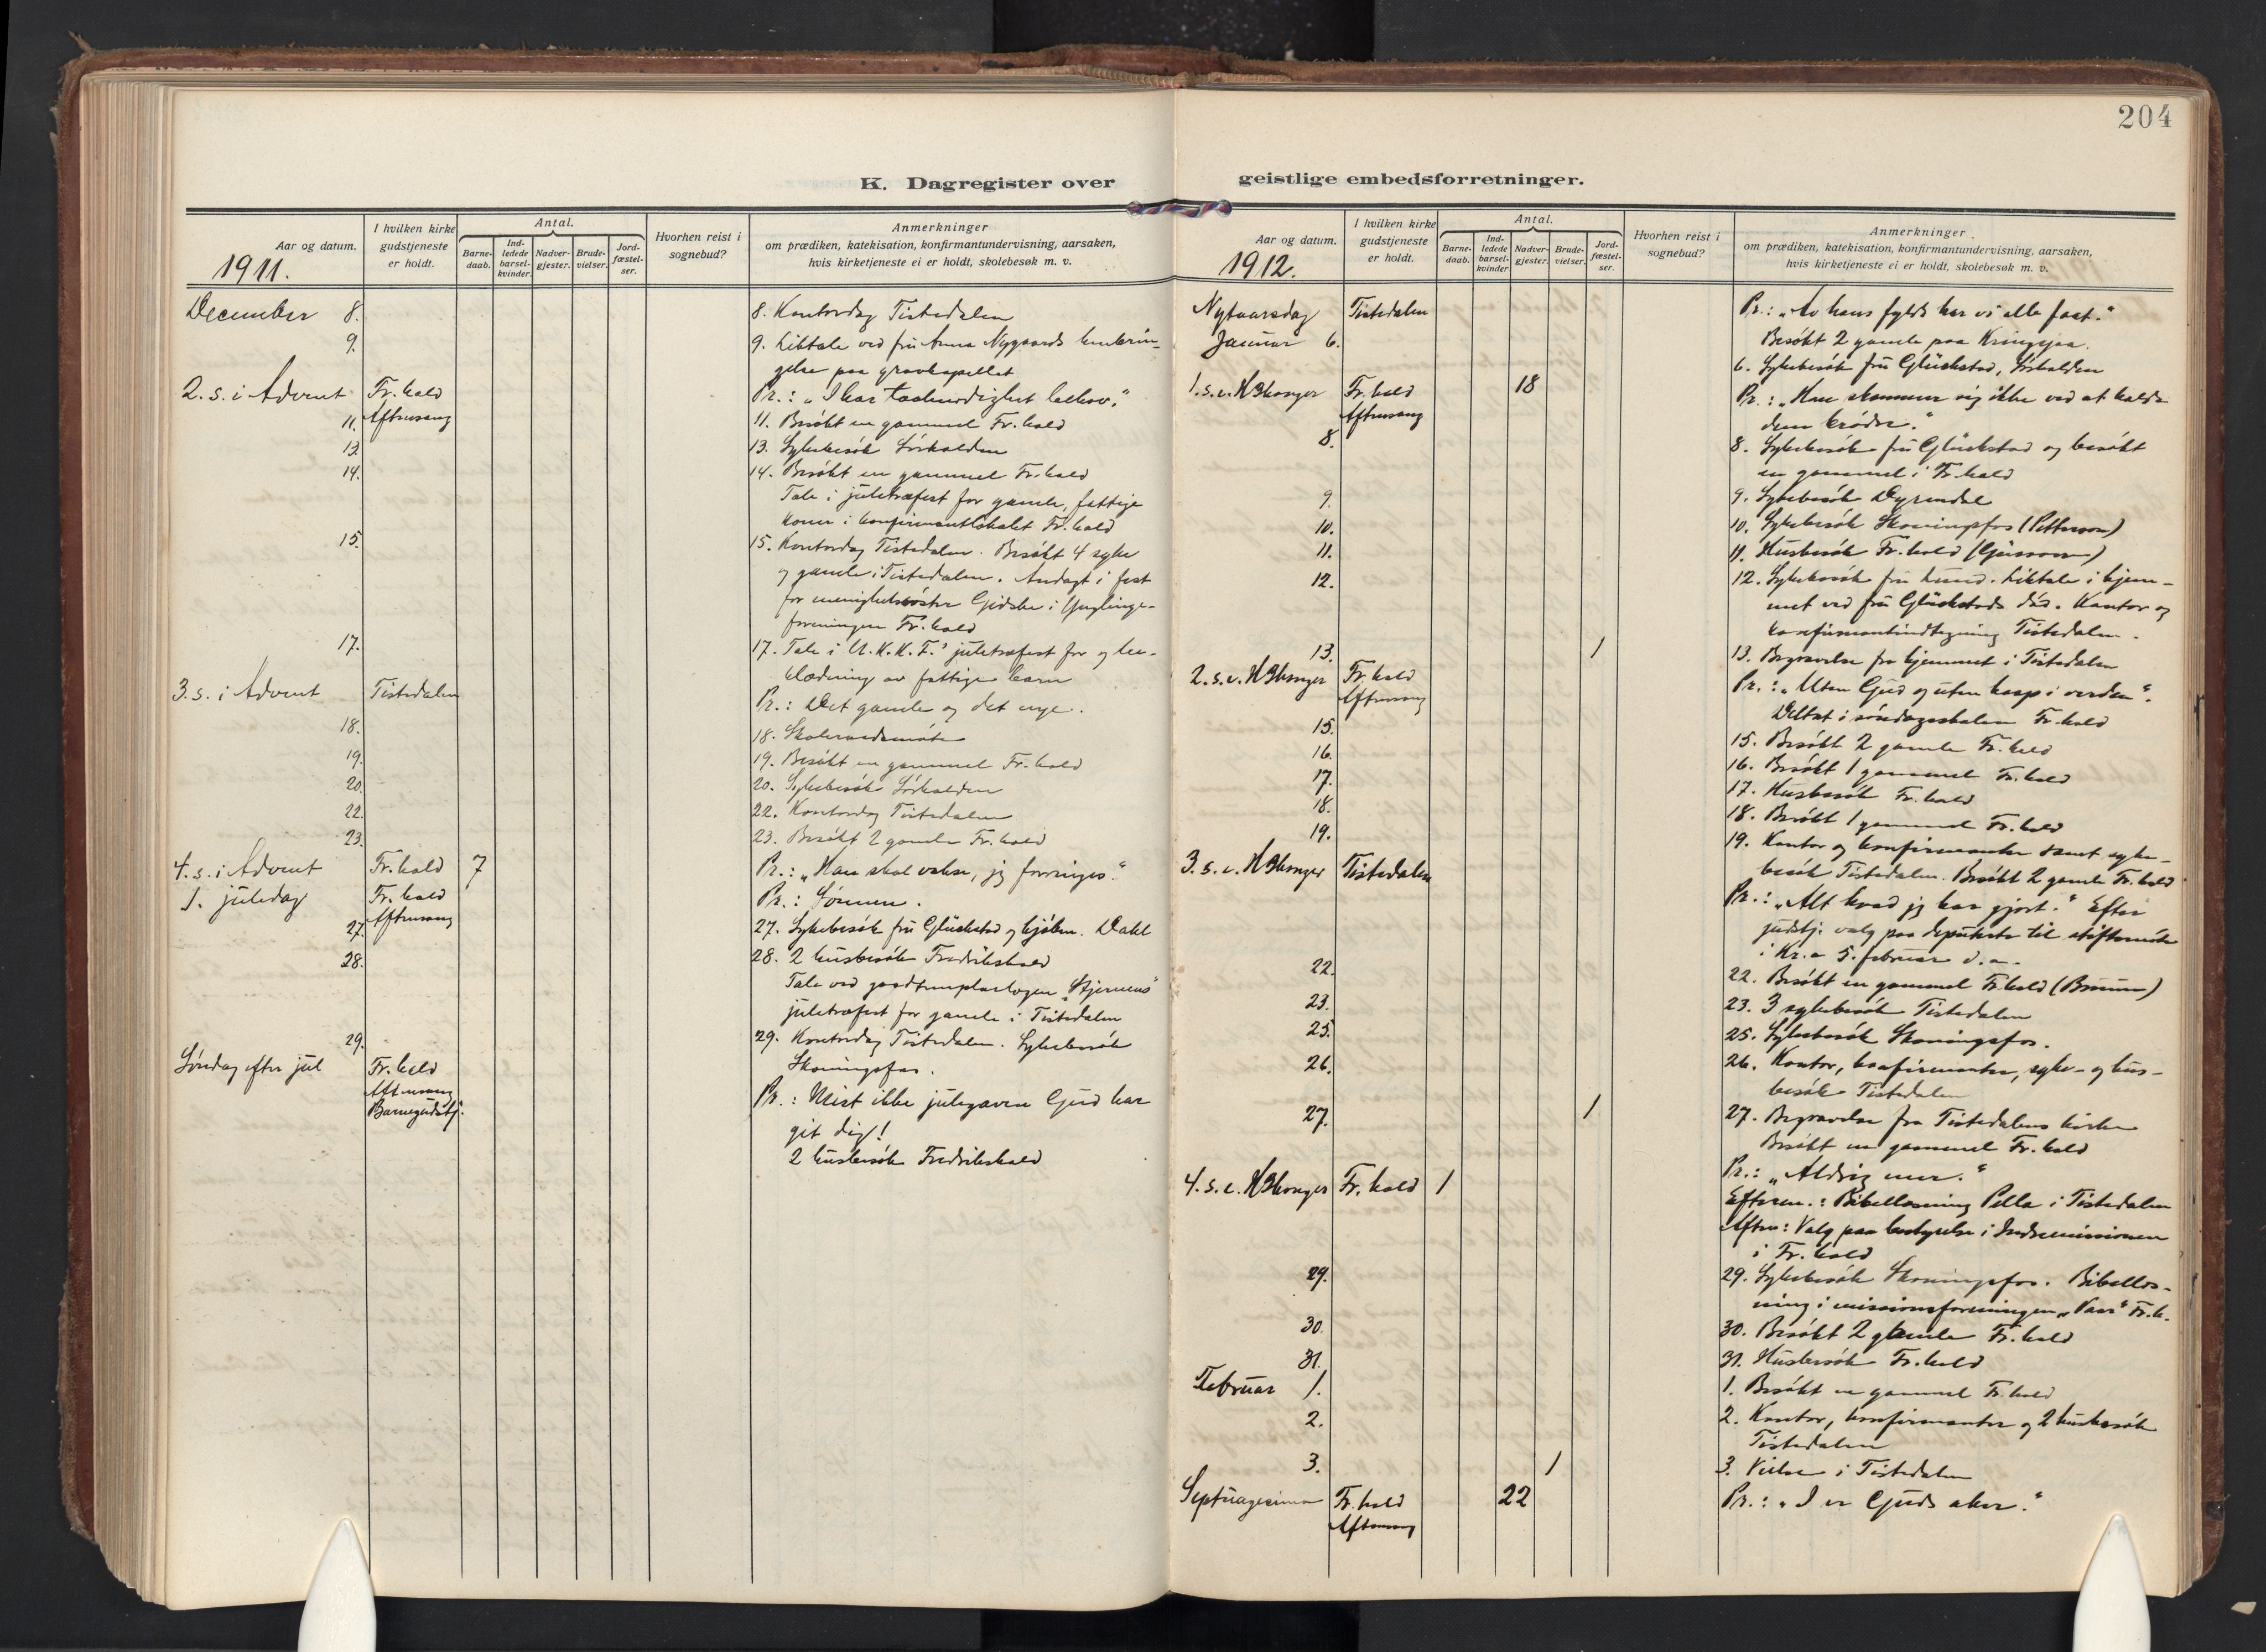 204
K. Dagregister over
geistlige embedsforretninger.
Aar og datum.
1911.
I hvilken kirke gudstjeneste er holdt.
Antal.
Barne-daab.
Ind-ledede barsel-kvinder.
Nadver-gjester.
Brude-vielser.
Jord-fæstel-ser.
Hvorhen reist i sognebud?
Anmerkninger
om prædiken, katekisation, konfirmantundervisning, aarsaken,
hvis kirketjeneste ei er holdt, skolebesøk m. v.
December 8.
8. Kontordag Tistedalen
9.
9. Liktale ved fru Anna Nygaards henbrin-
gelse paa gravkapellet
2. s. i Advent Fr.hald
Aftensang
Pr.: "I har taalmodighet behov."
11.
11. Besøkt en gammel Fr.hald
13.
13. Sykebesøk Sørhalden
14.
14. Besøkt en gammel Fr.hald
Tale i juletræfest for gamle, fattige
koner i konfirmantlokalet Fr.hald
15.
15. Kontordag Tistedalen. Besøkt 4 syke
og gamle i Tistedalen. Andagt i fest
for menighetssøster Gidske i Ynglinge-
foreningen Fr.hald
17.
17. Tale i U.K.K.F.' juletræfest for og be-
klædning av fattige barn
3. s. i Advent Tistedalen
Pr.: Det gamle og det nye.
18.
18. Skoleraadsmøte
19.
19. Besøkt en gammel Fr.hald
20.
20. Sykebesøk Sørhalden
22.
22. Kontordag Tistedalen
23.
23. Besøkt 2 gamle Fr.hald
4. s. i Advent Fr.hald 7
Pr.: "Han skal vokse, jeg forringes."
1. juledag Fr.hald
Aftensang
Pr.: Sønnen.
27.
27. Sykebesøk fru Glückstad og kjøbm. Dahl
28.
28. 2 husbesøk Fredrikshald
Tale ved goodtemplarlogen "Stjernens"
juletræfest for gamle i Tistedalen
29.
29. Kontordag Tistedalen. Sykebesøk
Skoningsfos.
Søndag efter jul Fr.hald
Aftensang
Barnegudstj.
Pr.: Mist ikke julegaven Gud har
git dig!
2 husbesøk Fredrikshald
Aar og datum.
1912.
I hvilken kirke gudstjeneste er holdt.
Antal.
Barne-daab.
Ind-ledede barsel-kvinder
Nadver-gjester.
Brude-vielser.
Jord-fæstel-ser.
Hvorhen reist i sognebud?
Anmerkninger
om prædiken, katekisation, konfirmantundervisning, aarsaken,
hvis kirketjeneste ei er holdt, skolebesøk m. v.
Nytaarsdag Tistedalen
Pr.: "Av hans fylde har vi alle faat."
Besøkt 2 gamle paa Kringsjaa.
Januar 6.
6. Sykebesøk fru Glückstad, Sørhalden
1. s. e. H3konger Fr.hald 18
Aftensang
Pr.: "Han skammer sig ikke ved at kalde
dem brødre."
8.
8. Sykebesøk fru Glückstad og besøkt
en gammel i Fr.hald
9.
9. Sykebesøk Dyrendal
10.
10. Sykebesøk Skoningsfos (Petterson)
11.
11. Husbesøk Fr.hald
12.
12. Sykebesøk fru Lund. Liktale i hjem-
met ved fru Glückstads død. Kontor og
konfirmantindtegning Tistedalen.
13. 1
13. Begravelse fra hjemmet i Tistedalen
2. s. e. H3konger Fr.hald
Aftensang
Pr.: "Uten Gud og uten haap i verden".
Deltat i søndagsskolen Fr.hald
15.
15. Besøkt 2 gamle Fr.hald
16.
16. Besøkt 1 gammel Fr.hald
17.
17. Husbesøk Fr.hald
18.
18. Besøkt 1 gammel Fr.hald
19.
19. Kontor og konfirmanter samt syke-
besøk Tistedalen. Besøkt 2 gamle Fr.hald
3. s. e. H3konger Tistedalen
Pr.: "Alt hvad jeg har gjort." Efter
gudstj. valg paa deputerte til stiftsmøte
i Kr.a 5. februar d.a.
22.
22. Besøkt en gammel Fr.hald
23.
23. 3 sykebesøk Tistedalen
25.
25. Sykebesøk Skoningsfos.
26.
26. Kontor, konfirmanter, syke- og hus-
besøk Tistedalen
27. 1
27. Begravelse fra Tistedalens kirke
Besøkt en gammel Fr.hald
4. s. e. H3konger Fr.hald 1
Pr.: "Aldrig mer."
Efterm.: Bibellæsning Pella i Tistedalen
Aften: Valg paa bestyrelse i Indremissionen
i Fr.hald
29.
29. Sykebesøk Skoningsfos. Bibellæs-
ning i missionsforeningen "Vaar" Fr.h.
30.
30. Besøkt 2 gamle Fr.hald
31.
31. Husbesøk Fr.hald
Februar 1.
1. Besøkt en gammel Fr.hald
2.
2. Kontor, konfirmanter og 2 husbesøk
Tistedalen
3. 1
3. Vielse i Tistedalen
Septuagesima Fr.hald 22
Aftensang
Pr.: "I er Guds aker."